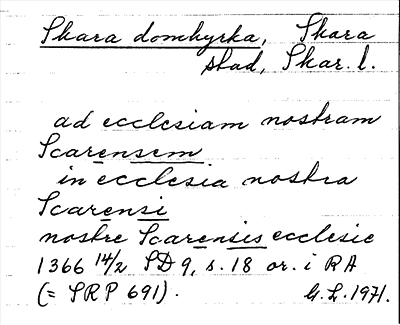 Skara domkyrka, Skara
stad, Skar. l.
ad ecclesiam nostram
Scarensem
in ecclesia nostra
Scarensi
nostre Scarensis ecclesie
1366 14/2 SD 9, s. 18 or. i RA
(= SRP 691). G. L. 1971.